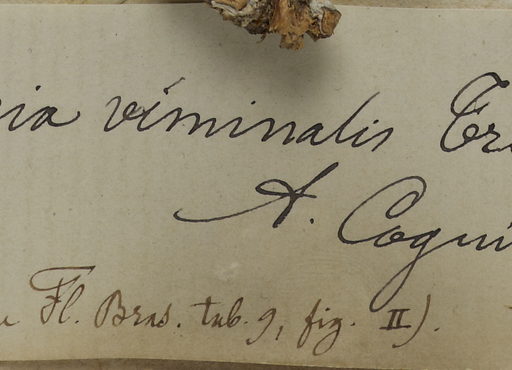 ia viminalis Tri
A. Cogni
Fl. Bras. tab. 9, fig. II).